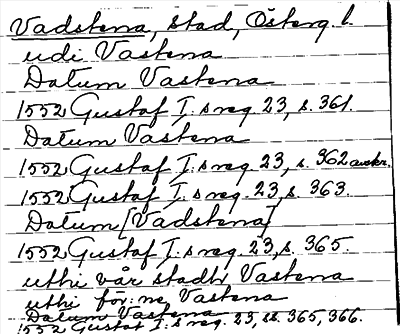 Vadstena, stad, Österg. l.
udi Vastena
Datum Vastena
1552 Gustaf I:s reg. 23, s. 361.
Datum Vastena
1552 Gustaf I:s reg. 23, s. 362 avskr.
1552 Gustaf I:s reg. 23, s. 363.
Datum [Vadstena]
1552 Gustaf I:s reg. 23, s. 365.
uthi vår stadh Vastena
uthi för:ne Vastena
Datum Vastena
1552 Gustaf I:s reg. 23, ss. 365, 366.